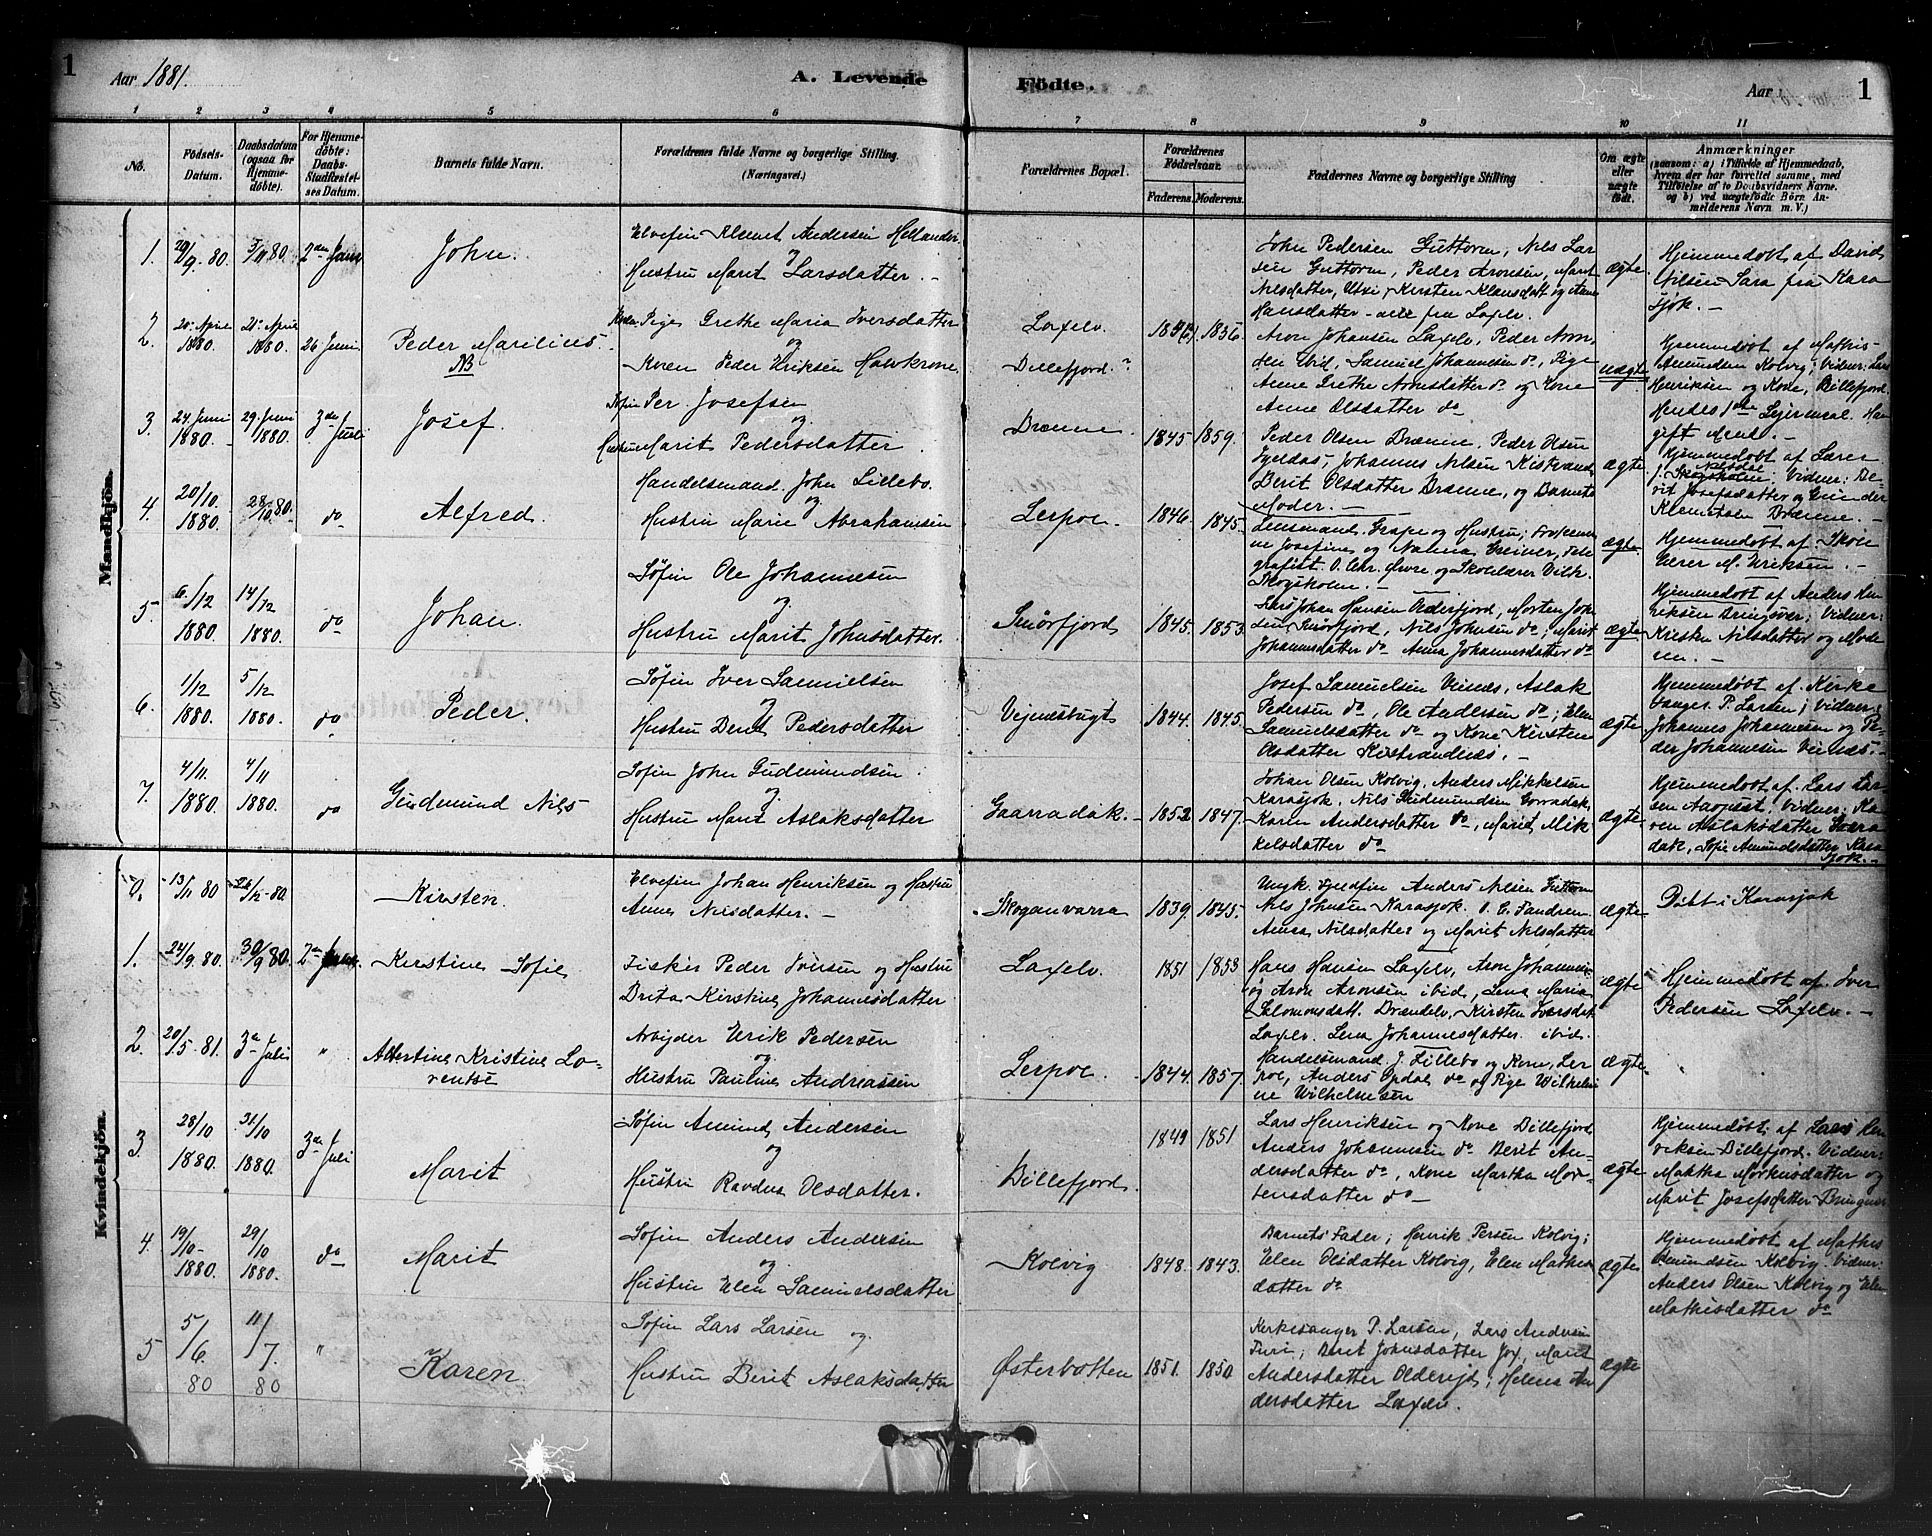 1
Aar 1881.
A. Levende
Födte.
Aar
1
1 2 3 4 5 6 7 8 9 10 11
No.
Födsels-
Datum.
Daabsdatum
(ogsaa for
Hjemme-
døbte).
For Hjemme-
döbte:
Daabs-
Stadfæstel-
ses Datum.
Barnets fulde Navn.
Forældrenes fulde Navne og borgerlige Stilling.
(Næringsvei.)
Forældrenes Bopæl.
Forældrenes
Födselsaar.
Faderens.
Moderens.
Faddernes Navne og borgerlige Stilling
Om ægte
eller
uægte
født.
Anmærkninger
(saasom: a) i Tilfælde af Hjemmedaab,
hvem der har forrettet samme, med
Tilföielse af to Daabsvidners Navne,
og b) ved uægtefödte Börn An-
melderens Navn m. V.)
Mandkjön.
1.
29/9-80.
John.
Elvefin Klemet Andersen
og
Hustru Marit Larsdatter.
John Pedersen Guttorm, Nils Lar
sen Guttorm, Peder Aronsen, Marit
Nilsdatter, Utsi, Kirsten Klausdatt og Anne
Hansdatter - alle fra Laxelv.
ægte
Hjemmedøbt af David
Nilsen Sara fra Kara
sjok.
2.
20. April
1880.
21. April
1880.
26 Juni
Peder Marilius.
NB
Pige Grethe Maria Iversdatter
og
Peder Eriksen
Laxelv
Billefjord.?
1836.
Aron Johansen Laxelv, Peder Aron
sen ibid, Samuel Johannesen do, Pige
Anne Grethe Aronsdatter do og Kone
Anne Olsdatter do
uægte
Hjemmedøbt af Mathis
Amundsen Kolvig; Vidner: Lars
Henriksen og Kone, Billefjord.
Hendes 1ste Leiermaal. Han
gift Mand.
3.
24. Juni
1880.
29. Juni
1880.
3die
Juli
Josef.
Søfin Per Josefsen
og
Hustru Marit Pedersdatter.
Brenne
1845
1859.
Peder Olsen Brænne, Peder Olsen
Johannes Nilsen Kistrand
Berit Olsdatter Brænne, og Barnets
Moder.
ægte
Hjemmedøbt af Lærer
Vidner: Be-
rit Josefsdatter og
Klemetsen Brænne.
4.
20/10
1880.
28/10 80.
do
Alfred.
Handelsmand John Lillebo
og
Hustru Marie Abrahamsen
Lerpoc.
1846.
1845.
Lensmand Grape og Hustru; Frøkenerne
Josefine og Greiner, Tele
grafist O. Chr. og Skolelærer Vilh.
Skogsholm.
ægte
Hjemmedøbt af Skole
lærer M. Eriksen.
5.
6/12
1880.
14/12
1880.
do
Johan.
Søfin Ole Johannesen
og
Hustru Marit Johnsdatter.
Smørfjord
1845.
1853.
Johan Hansen Olderfjord, Morten John
sen, Smørfjord, Nils Johnsen do; Marit
Johannesdatter do Anna Johannesdatter do
ægte
Hjemmedøbt af Anders Hen
riksen Vidner:
Kirsten Nilsdatter og Mode
ren.
6.
1/12
1880.
5/12
1880.
do
Peder.
Søfin Iver Samuelsen
og
Hustru Berit Pedersdatter
Vejnesbugt
1844.
1845.
Josef Samuelsen Veines, Aslak
Pedersen do, Ole Andersen do; Elen
Samuelsdatter do og Kone Kirsten
Olsdatter
ægte
Hjemmedøbt af Kirke
sanger P. Larsen; Vidner:
Johannes Johannesen og Pe-
der Johannesen Veines.
7.
4/11
1880.
4/11
1880.
do
Gudmund Nils
Søfin John Gudmundsen
og
Hustru Marit Aslaksdatter
Gaarradak.
1852
1847.
Johan Olsen Kolvig, Anders Mikkelsen
Karasjok, Nils Gudmundsen
Karen Andersdatter do, Marit Mik
kelsdatter do
ægte.
Hjemmedøbt af Lars Lar
sen Vidner: Ka
ren Aslaksdatter
dak, Sofie Amundsdatter Kara
sjok.
Kvindekjön.
0.
13/11 80
Kirsten.
Elvefin Johan Henriksen og Hustru
Anne Nilsdatter.
Skoganvarra
1839.
1845.
Ungk. Fjeldfin Anders Nilsen Guttorm
Nils Johnsen Karasjok.
Anna Nilsdatter og Marit Nilsdatter
ægte
Døbt i Karasjok
1.
24/9 80.
30/9 80.
Kirstine Sofie
Fisker Peder Iversen og Hustru
Brita Kirstine Johannesdatter
Laxelv.
1851
1853
Hans Hansen Laxelv, Aron Johannes
og Aron Aronsen ibid, Lena Maria
Salomonsdatt. Brændelv, Kirsten Iversdat
Laxelv. Lena Johannesdatter ibid.
ægte
Hjemmedøbt af Iver
Pedersen Laxelv.
2.
20/5-81.
3die Juli
"
Albertine Kristine Lo-
rentse
Arbejder Erik Pedersen
og
Hustru Pauline Andreassen
Lerpoc.
1844.
1857.
Handelsmand J. Lillebo og Kone, Ler
poc, Anders Opdal do og Pige Wilhelmi
ne Wilhelmsen
ægte
3.
28/10
1880.
31/10
1880.
3die
Juli
Marit
Søfin Amund Andersen
og
Hustru Ravdna Olsdatter.
Billefjord.
1849
1851
Lars Henriksen og Kone Billefjord
Anders Johannesen do Berit An-
dersdatter do, Kone Martha Mor-
tensdatter do
ægte
Hjemmedøbt af Lars Hen
riksen Billefjord. Vidner:
Martha Mortensdatter og
Marit Josefsdatter
4.
19/10-
1880.
29/10
1880.
do
Marit
Søfin Anders Andersen
og
Hustru Elen Samuelsdatter
Kolvig
1848.
1843.
Barnets Fader; Henrik Persen Kolvig;
Elen Olsdatter Kolvig, Elen Mathis
datter do
ægte
Hjemmedøbt af Mathis
Amundsen Kolvig. Vidner:
Anders Olsen Kolvig og Elen
Mathisdatter do
5
5/6
80
11/7.
80
"
Karen
Søfin Lars Larsen og
Hustru Berit Aslaksdatter
Østerbotten
1851.
1850
Kirkesanger P. Larsen, Lars Andersen
Berit Johnsdatter Marit
Andersdatter Helena An
dersdatter Laxelv.
ægte